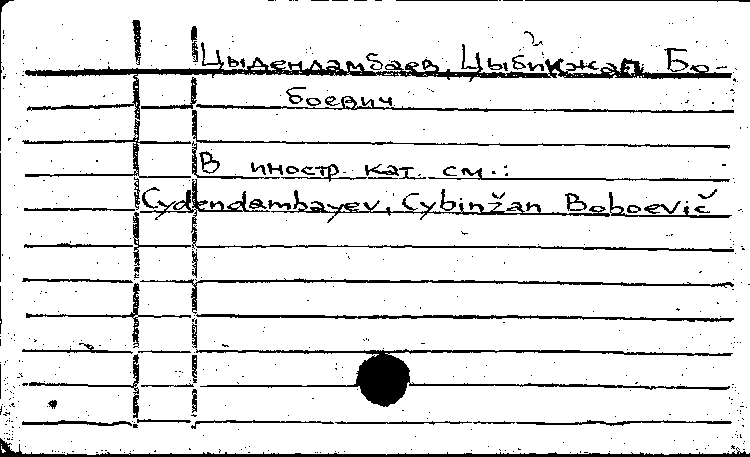 Цыдендамбаев, Цыбикжап Бо-
боевич
В иностр. кат. см.:
Cydendambayev, Cybinžan Boboevič